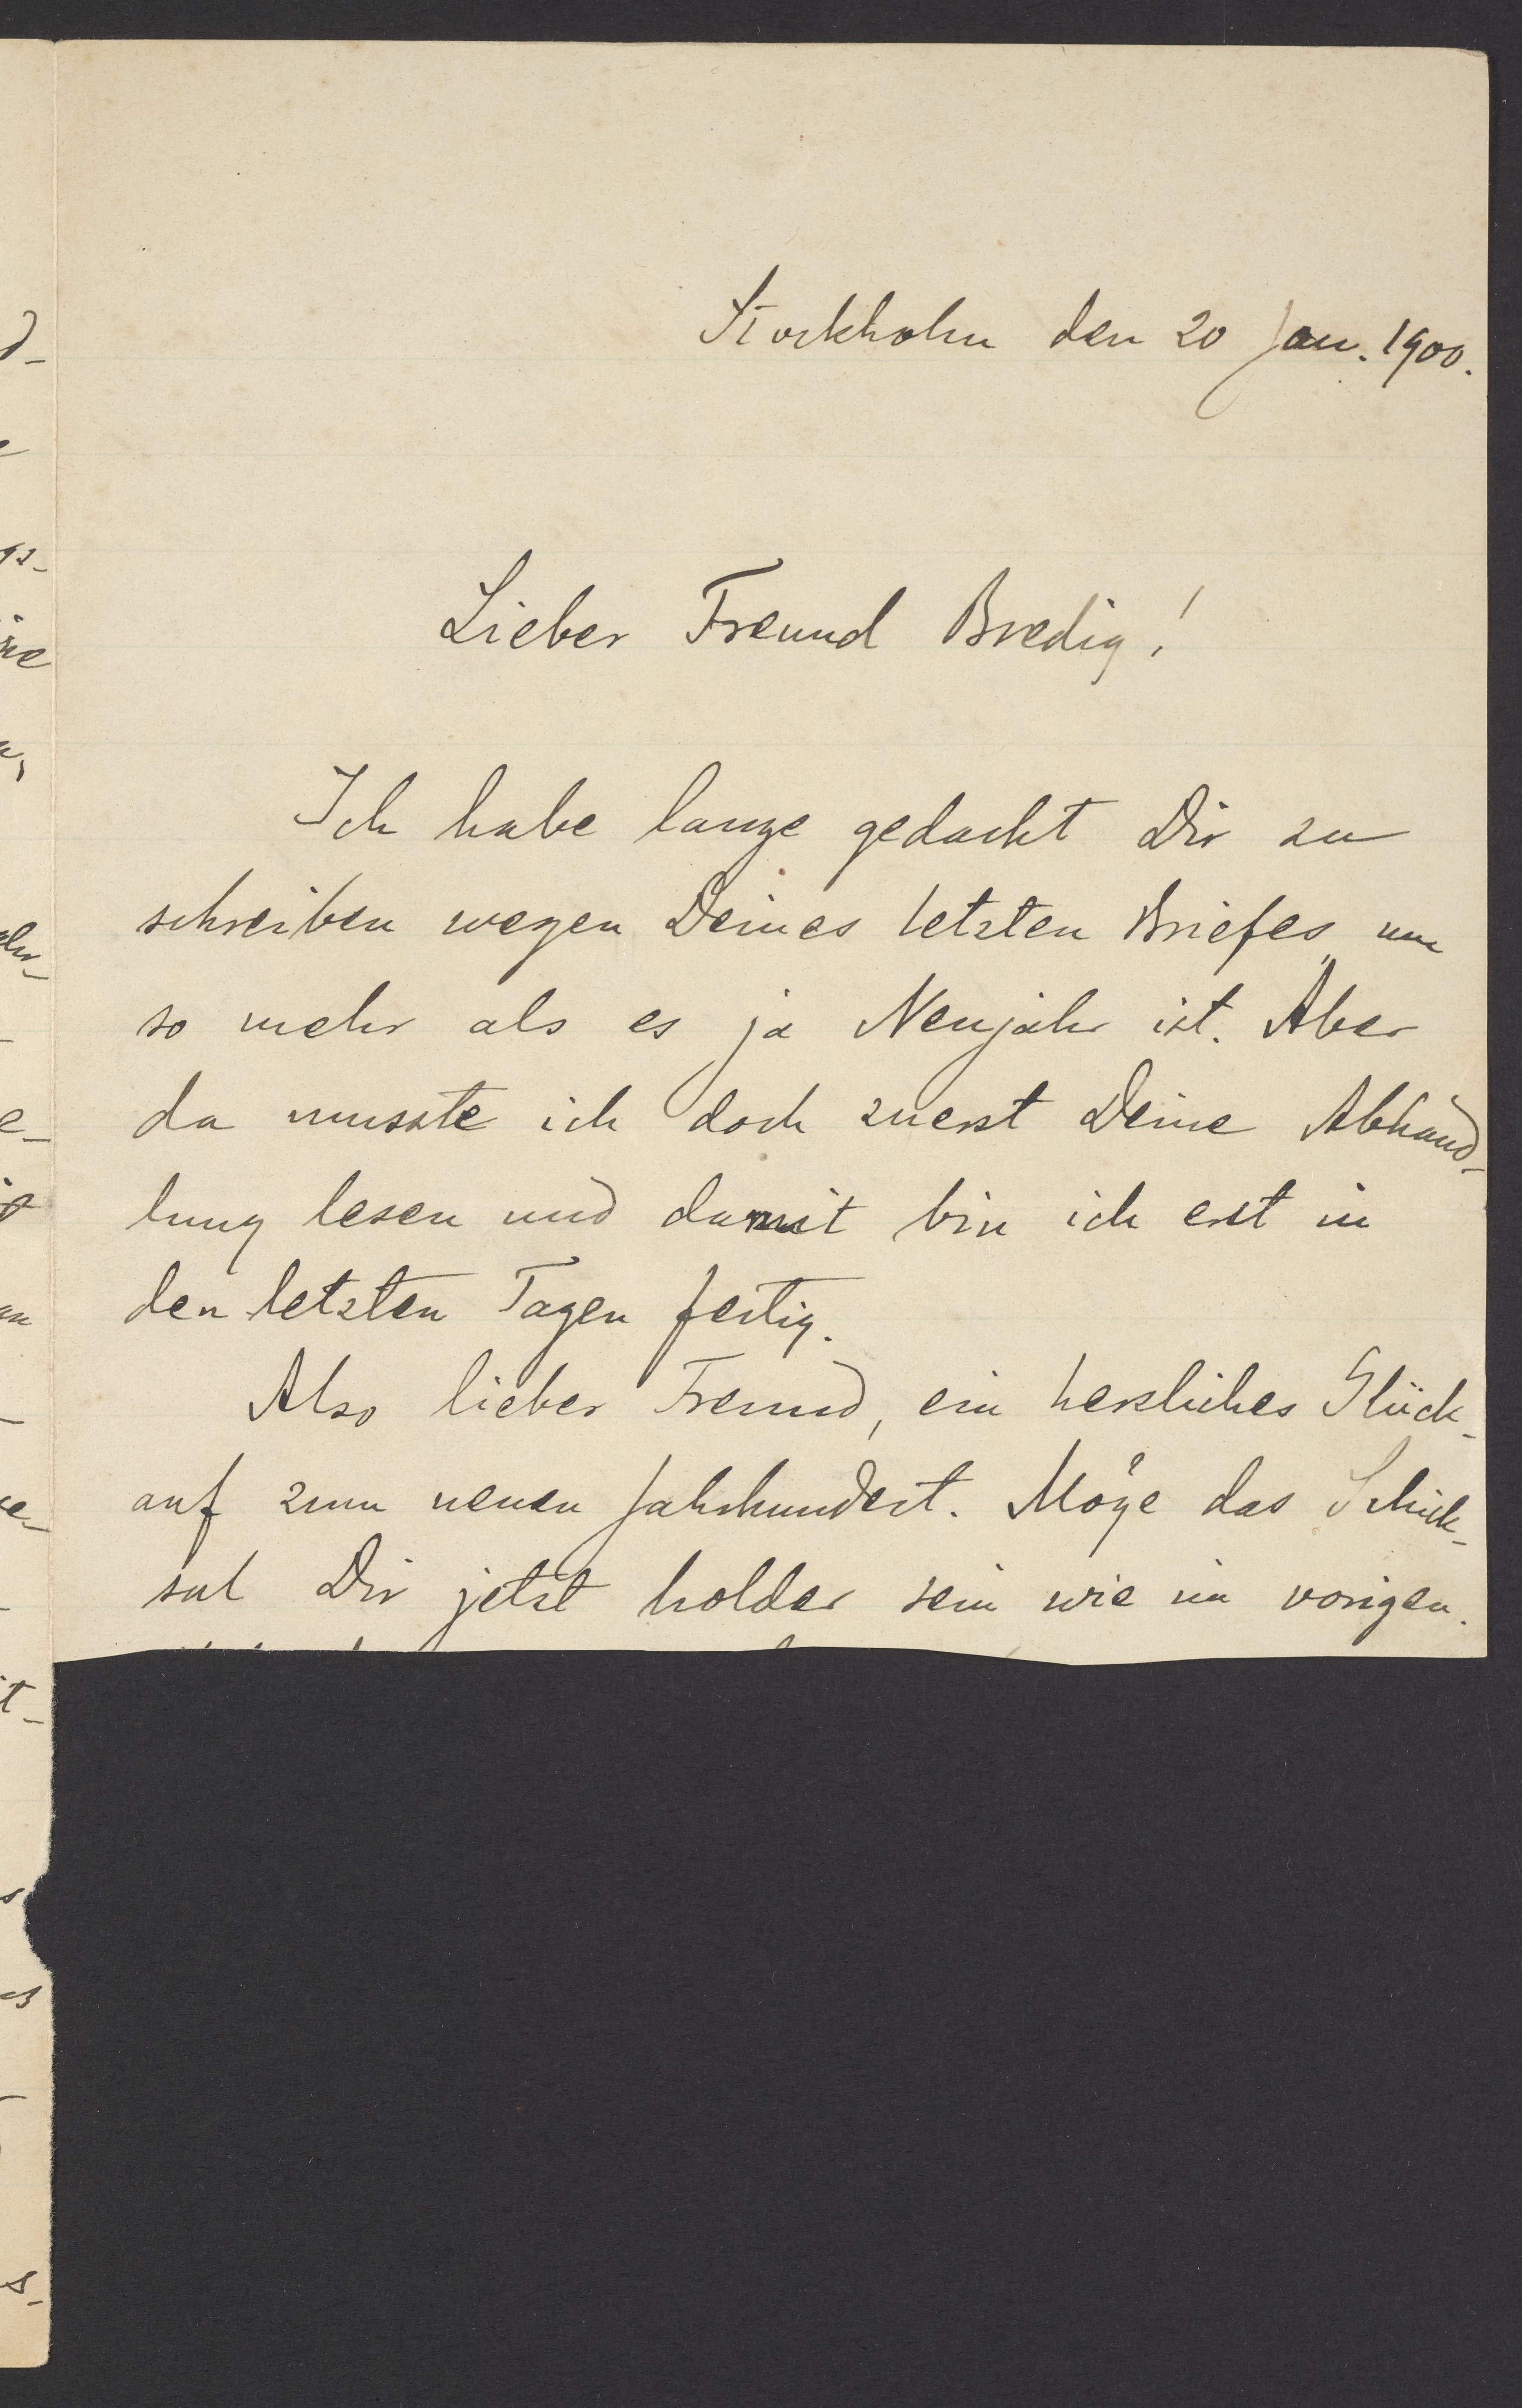 Stockholm den 20 Jan. 1900.
Lieber Freund Bredig!
Ich habe lange gedacht Dir zu
schreiben wegen Deines letzten Briefes, um
so mehr als es ja Neujahr ist. Aber
da musste ich doch zuerst Deine Abhand-
lung lesen und damit bin ich erst in
den letzten Tagen fertig.
Also lieber Freund, ein herzliches Glück-
auf zum neuen Jahrhundert. Möge das Schick-
sal Dir jetzt holder sein wie im vorigen.